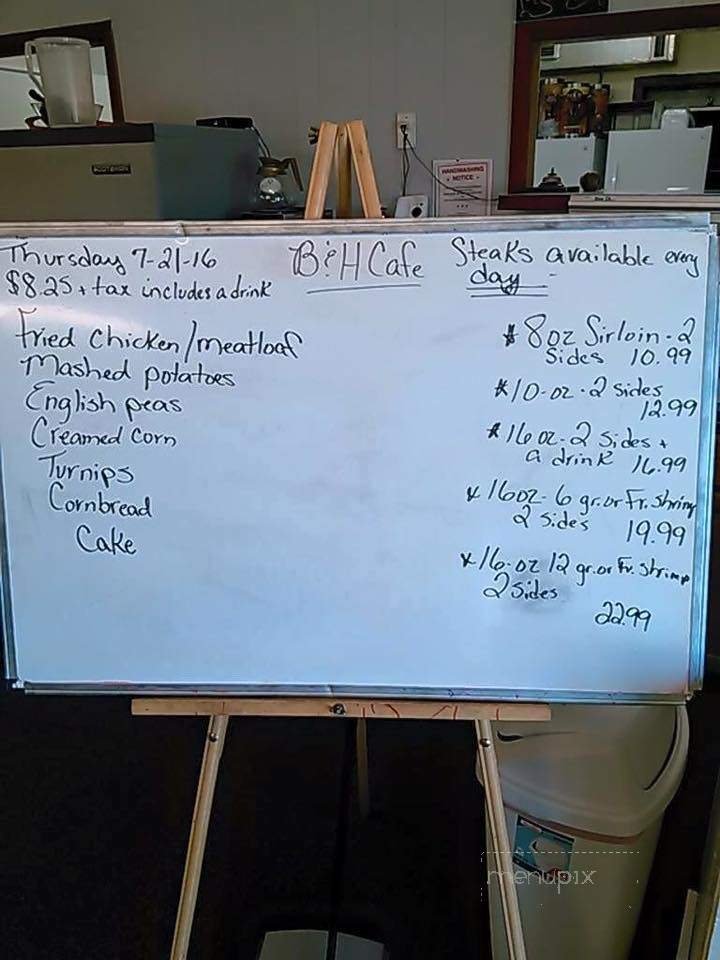 SCOTSMAN
HANDWASHING
NOTICE
Thursday 7-21-16
$8.25 + tax includes a drink
B&H Cafe
Steaks available every
day
Fried Chicken/meatloaf
Mashed potatoes
English peas
Creamed corn
Turnips
Cornbread
Cake
* 8oz Sirloin - 2
Sides 10.99
* 10-oz - 2 sides
12.99
* 16oz - 2 sides +
a drink 16.99
* 16oz - 6 gr. or Fr. Shrimp
2 sides 19.99
* 16-oz 12 gr. or Fr. Shrimp
2 sides
22.99
menupix